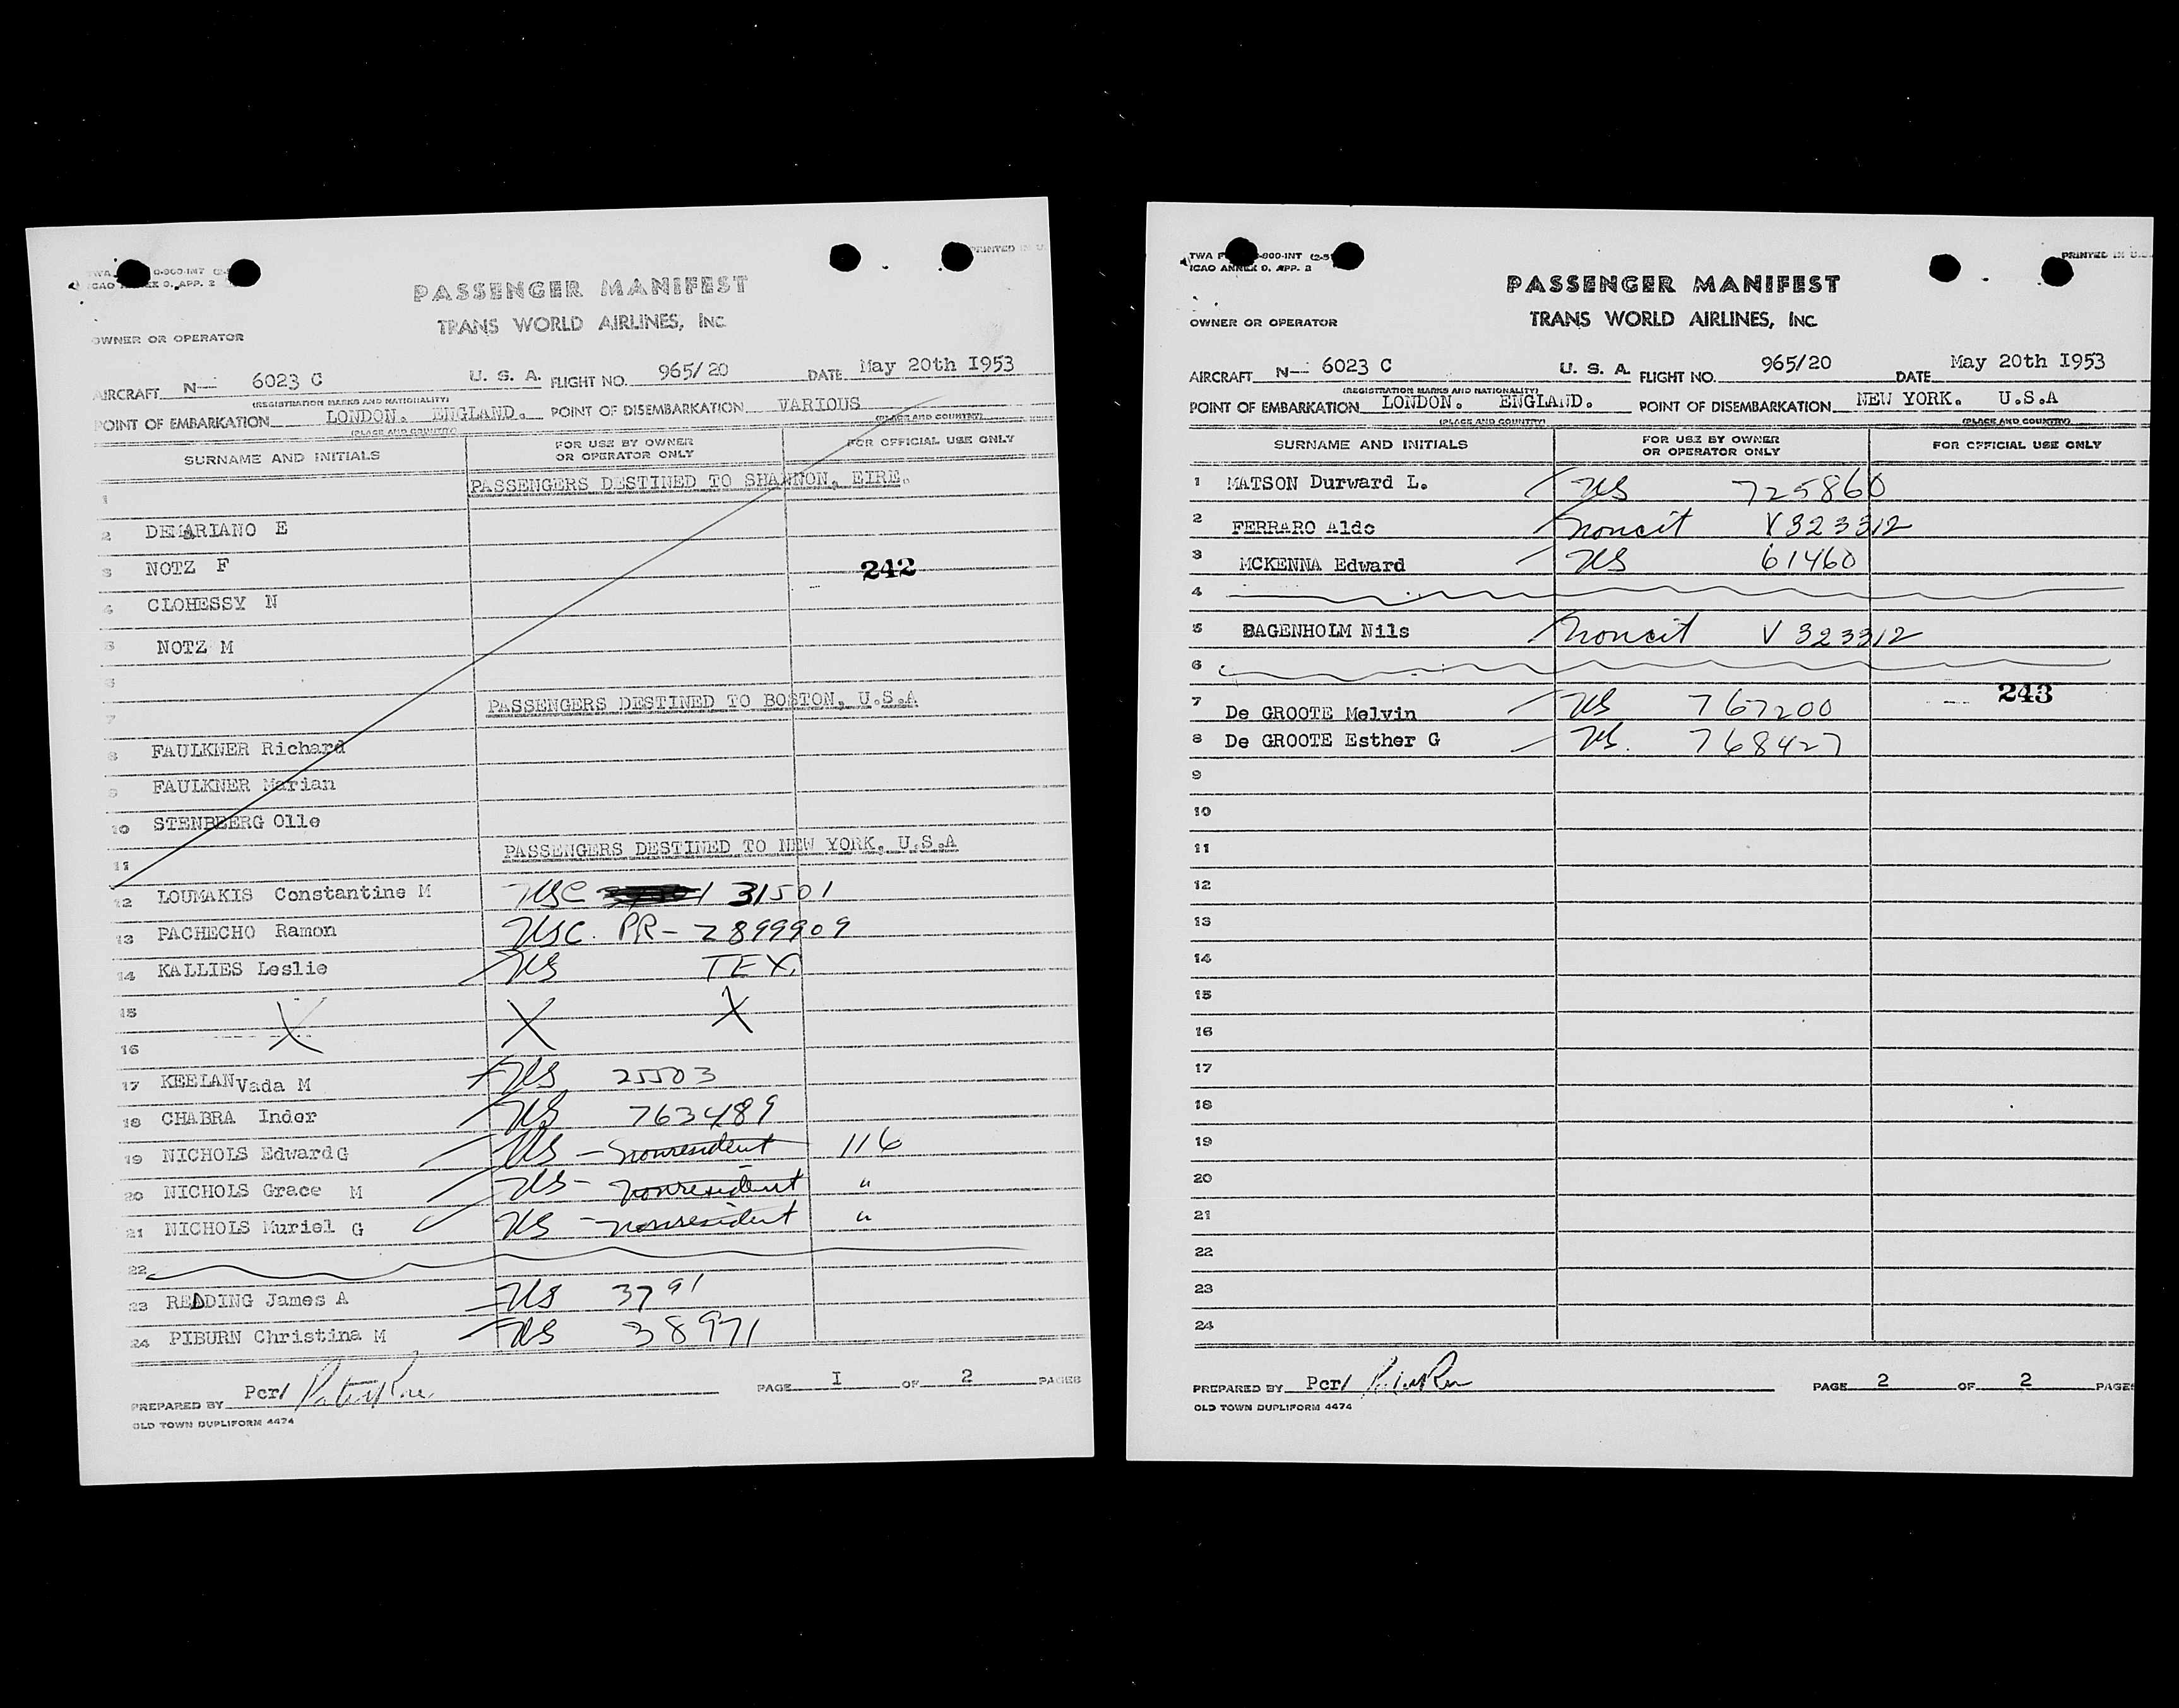 TWA 0-800-INT (2-5
ICAO ANNEX 9, APP. 2
PRINTED IN U.
PASSENGER MANIFEST
TRANS WORLD AIRLINES, INC
OWNER OR OPERATOR
AIRCRAFT N— 6023 C U. S. A. FLIGHT NO. 965/20 DATE May 20th I953
(REGISTRATION MARKS AND NATIONALITY)
POINT OF EMBARKATION LONDON. ENGLAND. POINT OF DISEMBARKATION VARIOUS
(PLACE AND COUNTRY) (PLACE AND COUNTRY)
SURNAME AND INITIALS FOR USE BY OWNER OR OPERATOR ONLY FOR OFFICIAL USE ONLY
1 PASSENGERS DESTINED TO SHANNON, EIRE.
2 DEMARIANO E
3 NOTZ F 242
4 CLOHESSY N
5 NOTZ M
6
7 PASSENGERS DESTINED TO BOSTON, U.S.A
8 FAULKNER Richard
9 FAULKNER Marian
10 STENBEERG Olle
11 PASSENGERS DESTINED TO NEW YORK, U.S.A
12 LOUMAKIS Constantine M USC 31501
13 PACHECHO Ramon USC. PR- 2899909
14 KALLIES Leslie US TEX.
15 X X X
16
17 KEELAN Vada M US 25503
18 CHABRA Inder US 763489
19 NICHOLS Edward G US - nonresident 116
20 NICHOLS Grace M US - nonresident "
21 NICHOLS Muriel G US - nonresident "
22
23 READING James A US 3791
24 PIBURN Christina M US 38971
PREPARED BY Per/ PAGE I OF 2 PAGES
OLD TOWN DUPLIFORM 4474
TWA F -800-INT (2-5
ICAO ANNEX 9, APP. 2
PRINTED IN U.S.
PASSENGER MANIFEST
TRANS WORLD AIRLINES, INC
OWNER OR OPERATOR
AIRCRAFT N— 6023 C U. S. A. FLIGHT NO. 965/20 DATE May 20th I953
(REGISTRATION MARKS AND NATIONALITY)
POINT OF EMBARKATION LONDON. ENGLAND. POINT OF DISEMBARKATION NEW YORK. U.S.A
(PLACE AND COUNTRY) (PLACE AND COUNTRY)
SURNAME AND INITIALS FOR USE BY OWNER OR OPERATOR ONLY FOR OFFICIAL USE ONLY
1 MATSON Durward L. US 725860
2 FERRARO Aldo noncit V 323312
3 MCKENNA Edward US 61460
4
5 BAGENHOLM Nils noncit V 323312
6
7 De GROOTE Melvin US 767200 243
8 De GROOTE Esther G US. 768427
9
10
11
12
13
14
15
16
17
18
19
20
21
22
23
24
PREPARED BY Per/ PAGE 2 OF 2 PAGES
OLD TOWN DUPLIFORM 4474